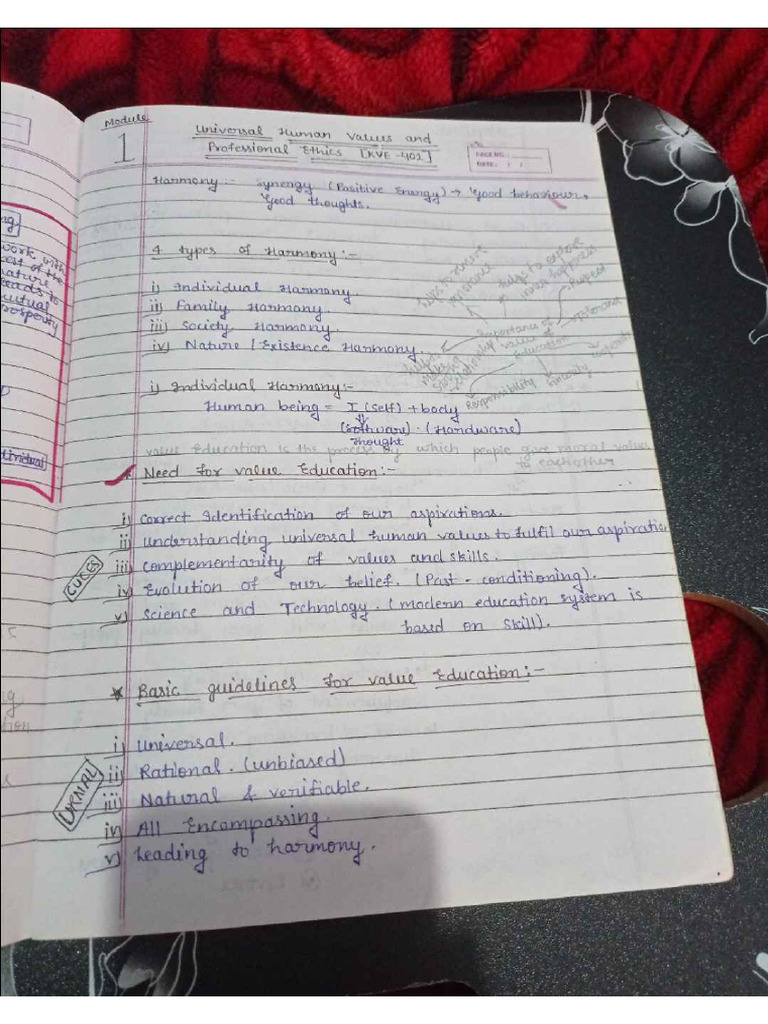 Module
1
Universal Human Values and
Professional Ethics [KVE-401]
PAGE NO.:
DATE: / /
Harmony:- Synergy (Positive Energy) → Good behaviour,
Good thoughts.
4 types of Harmony:-
i) Individual Harmony.
ii) Family Harmony.
iii) Society Harmony.
iv) Nature / Existence Harmony
helps to explore
inner happiness
Respect
Importance of
value of
Education
Responsibility
i) Individual Harmony:-
Human being = I (self) + body
(Software) . (Hardware)
Thought
value Education is the process by which people give moral values
to eachother
* Need for value Education:-
i) Correct Identification of our aspirations.
ii) Understanding universal human values to fulfil our aspiration
iii) Complementarity of values and skills.
CUCES
iv) Evolution of our belief. (Past-conditioning).
v) Science and Technology. (modern education system is
based on skill).
* Basic guidelines for value Education:-
i) Universal.
ii) Rational. (unbiased)
URNAL
iii) Natural & verifiable.
iv) All Encompassing.
v) Leading to harmony.
work with
rest of the
nature
leads to
mutual
prosperity